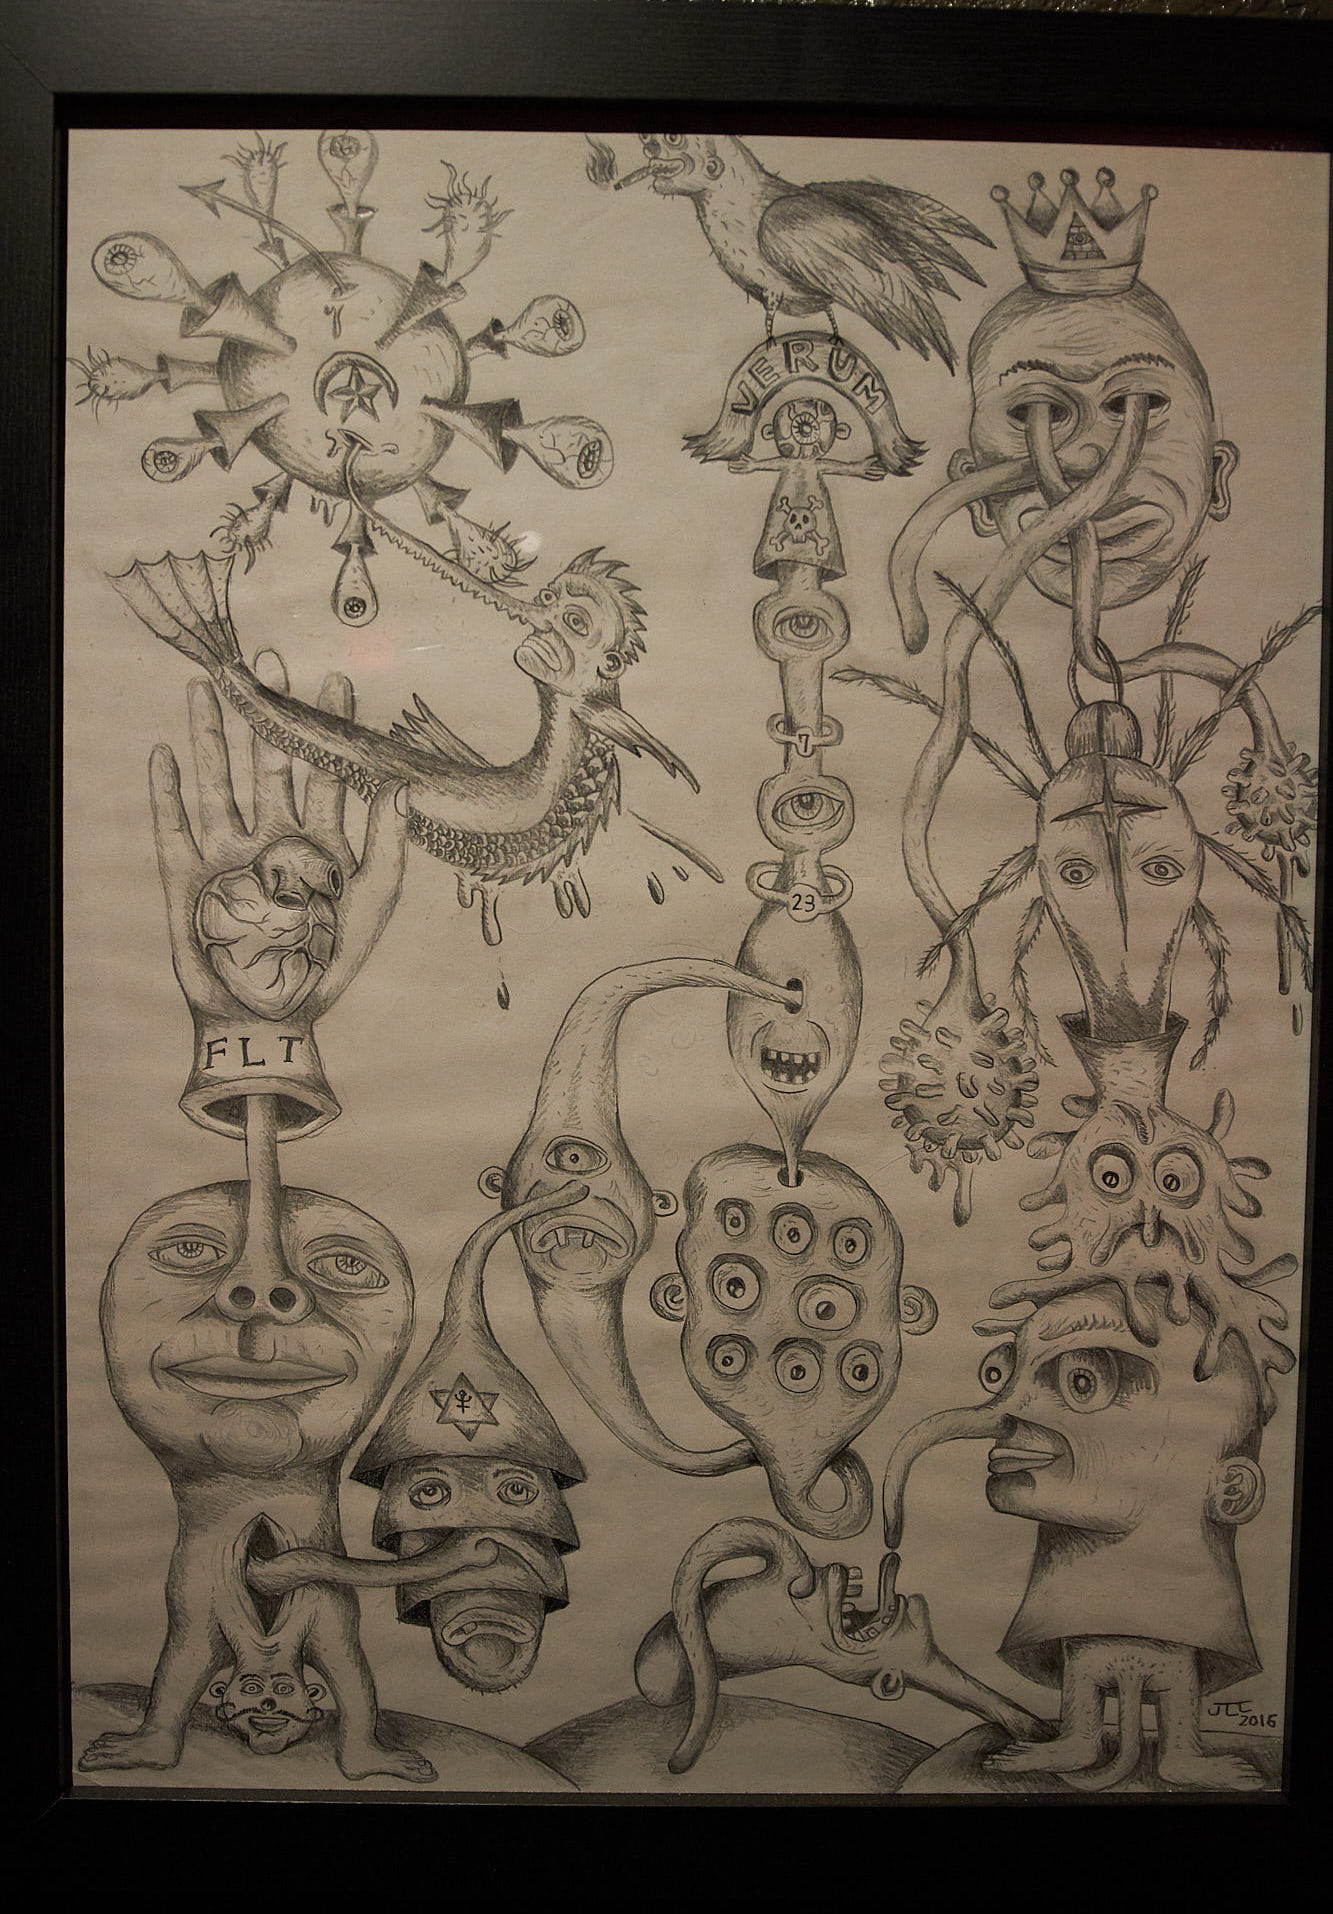 VERUM
7
23
FLT
JLL
2016